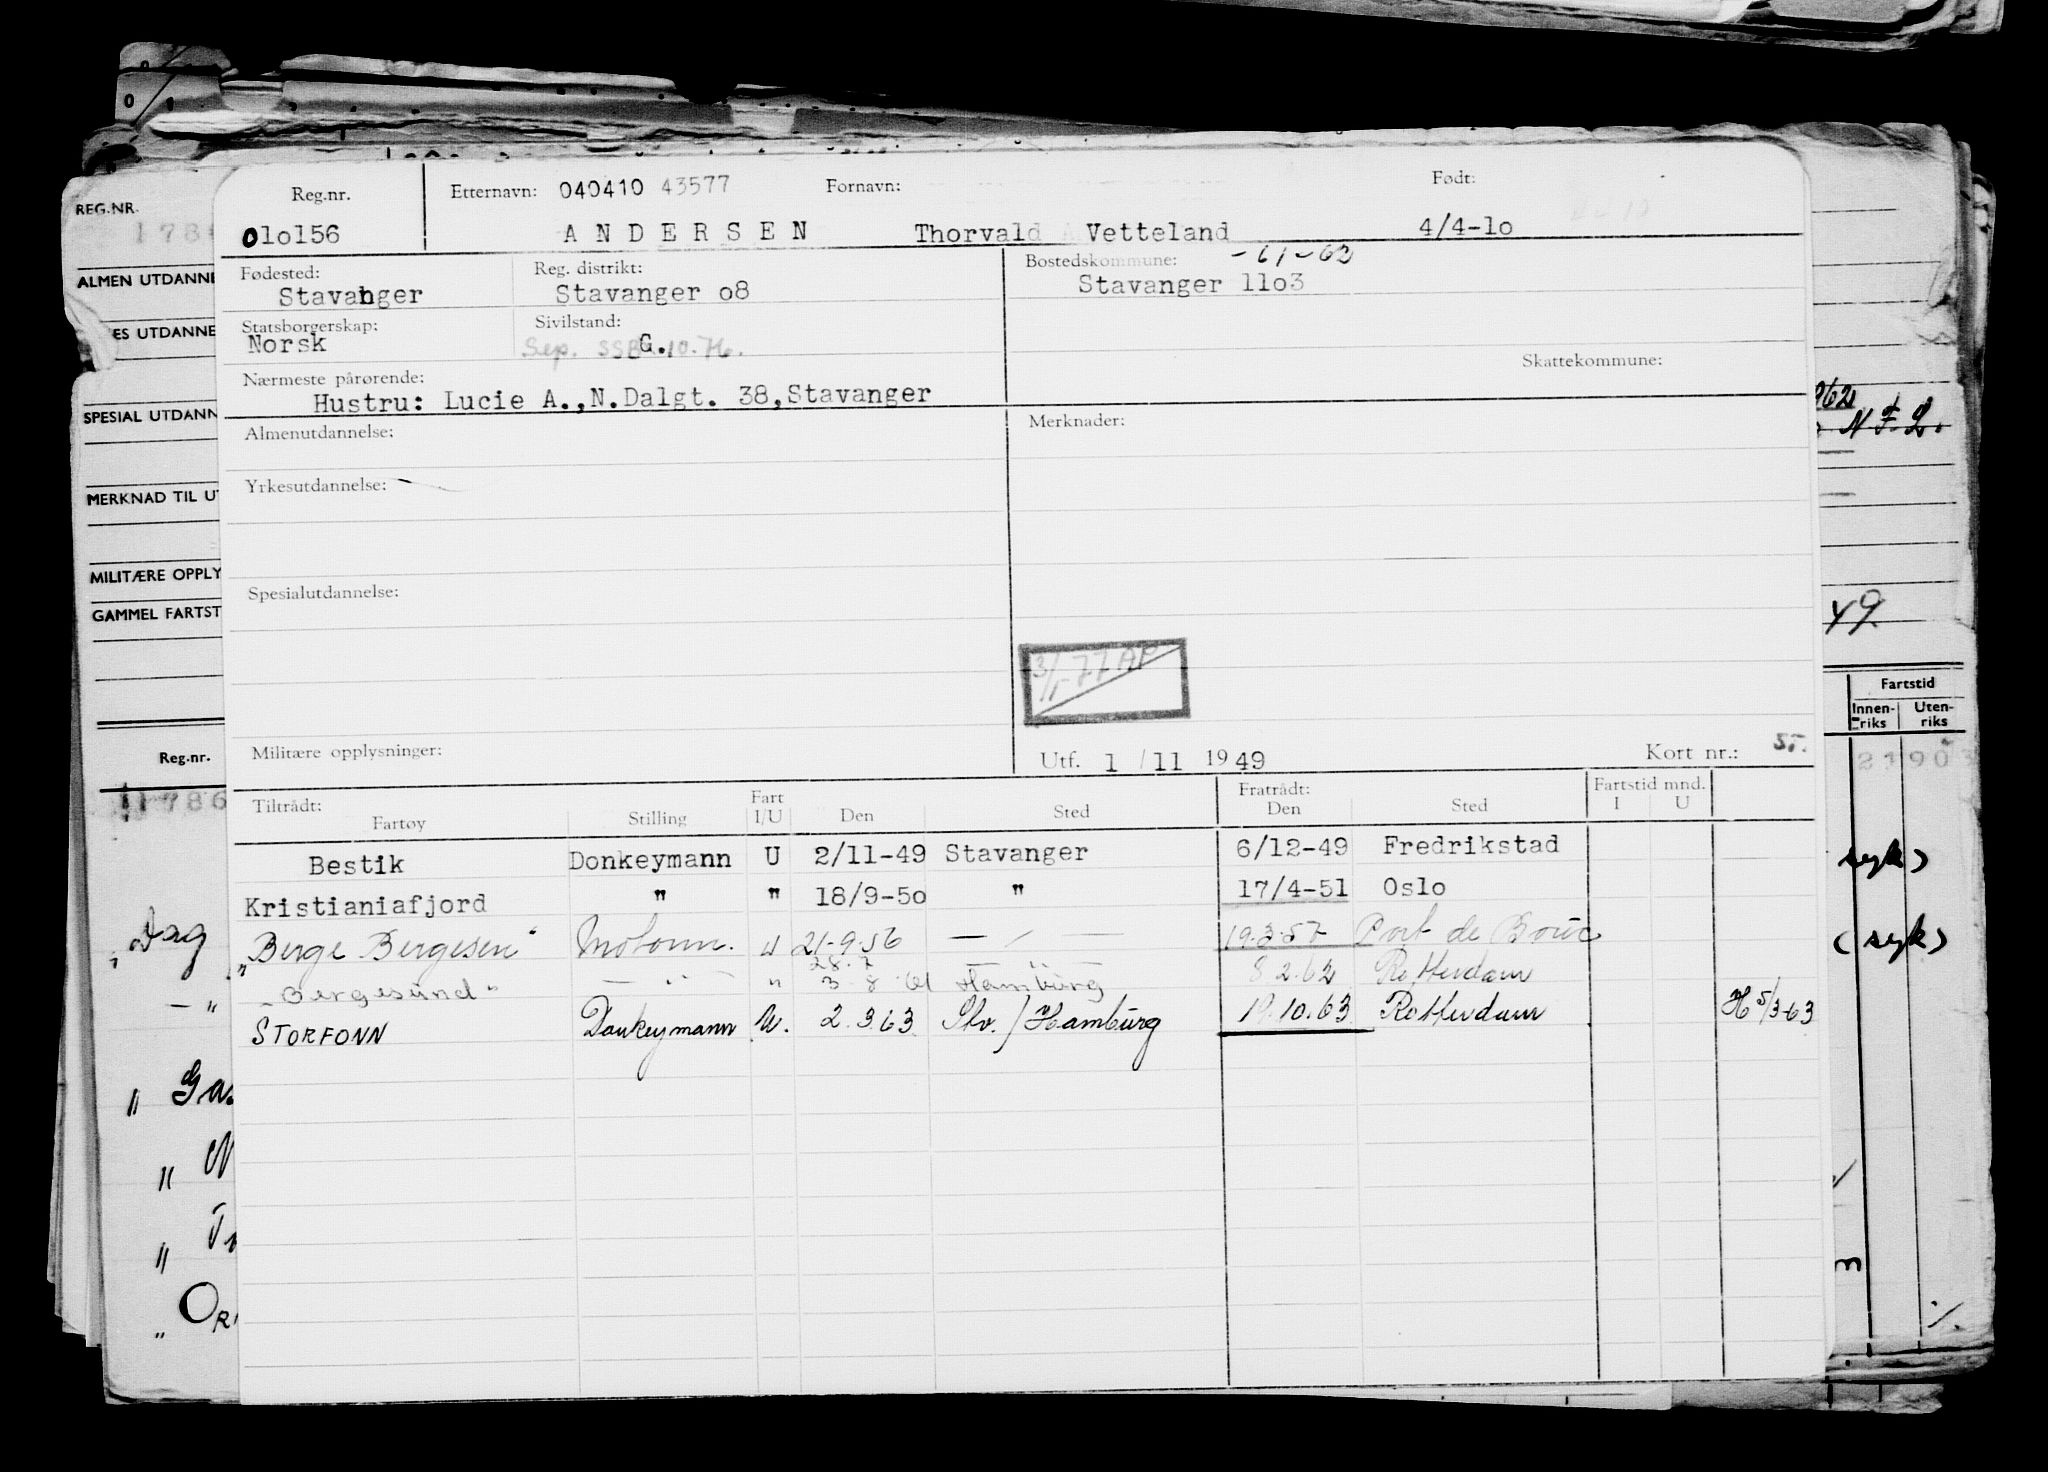 REG.NR.
ALMEN UTDANNE
ES UTDANNE
SPESIAL UTDANN
MERKNAD TIL UT
MILITÆRE OPPLY
GAMMEL FARTST
Reg.nr.
1786
„Dag
— " 
" Ga
" N
" T
„ OR
Reg.nr. Etternavn: 040410 43577 Fornavn: Født:
010156 ANDERSEN Thorvald Vetteland 4/4-10
Fødested: Reg. distrikt: Bostedskommune: -61-62
Stavanger Stavanger o8 Stavanger 11o3
Statsborgerskap: Sivilstand:
Norsk Sep. SSB G.10.76.
Skattekommune:
Nærmeste pårørende:
Hustru: Lucie A.,N.Dalgt. 38,Stavanger
Almenutdannelse: Merknader:
Yrkesutdannelse:
Spesialutdannelse:
3/1-77 AP
Militære opplysninger: Utf. 1 /11 1949 Kort nr.: 5.
Tiltrådt: Fart Fratrådt: Fartstid mnd.
Fartøy Stilling I/U Den Sted Den Sted I U
Bestik Donkeymann U 2/11-49 Stavanger 6/12-49 Fredrikstad
Kristianiafjord " " 18/9-5o " 17/4-51 Oslo
„Berge Bergesen" Motorm. u 21-9.56 — / — 19.3.57 Port de Bouc
28.7
„Bergesund" — " — " 3 8 61 Hamburg 8.2.62 Rotterdam
STORFONN Donkeymann U. 2.3.63 Stv./Hamburg 19.10.63 Rotterdam H 5/3-63
962
N F 2.
49
Fartstid
Innen-riks Uten-riks
21903
syk)
(syk)
m